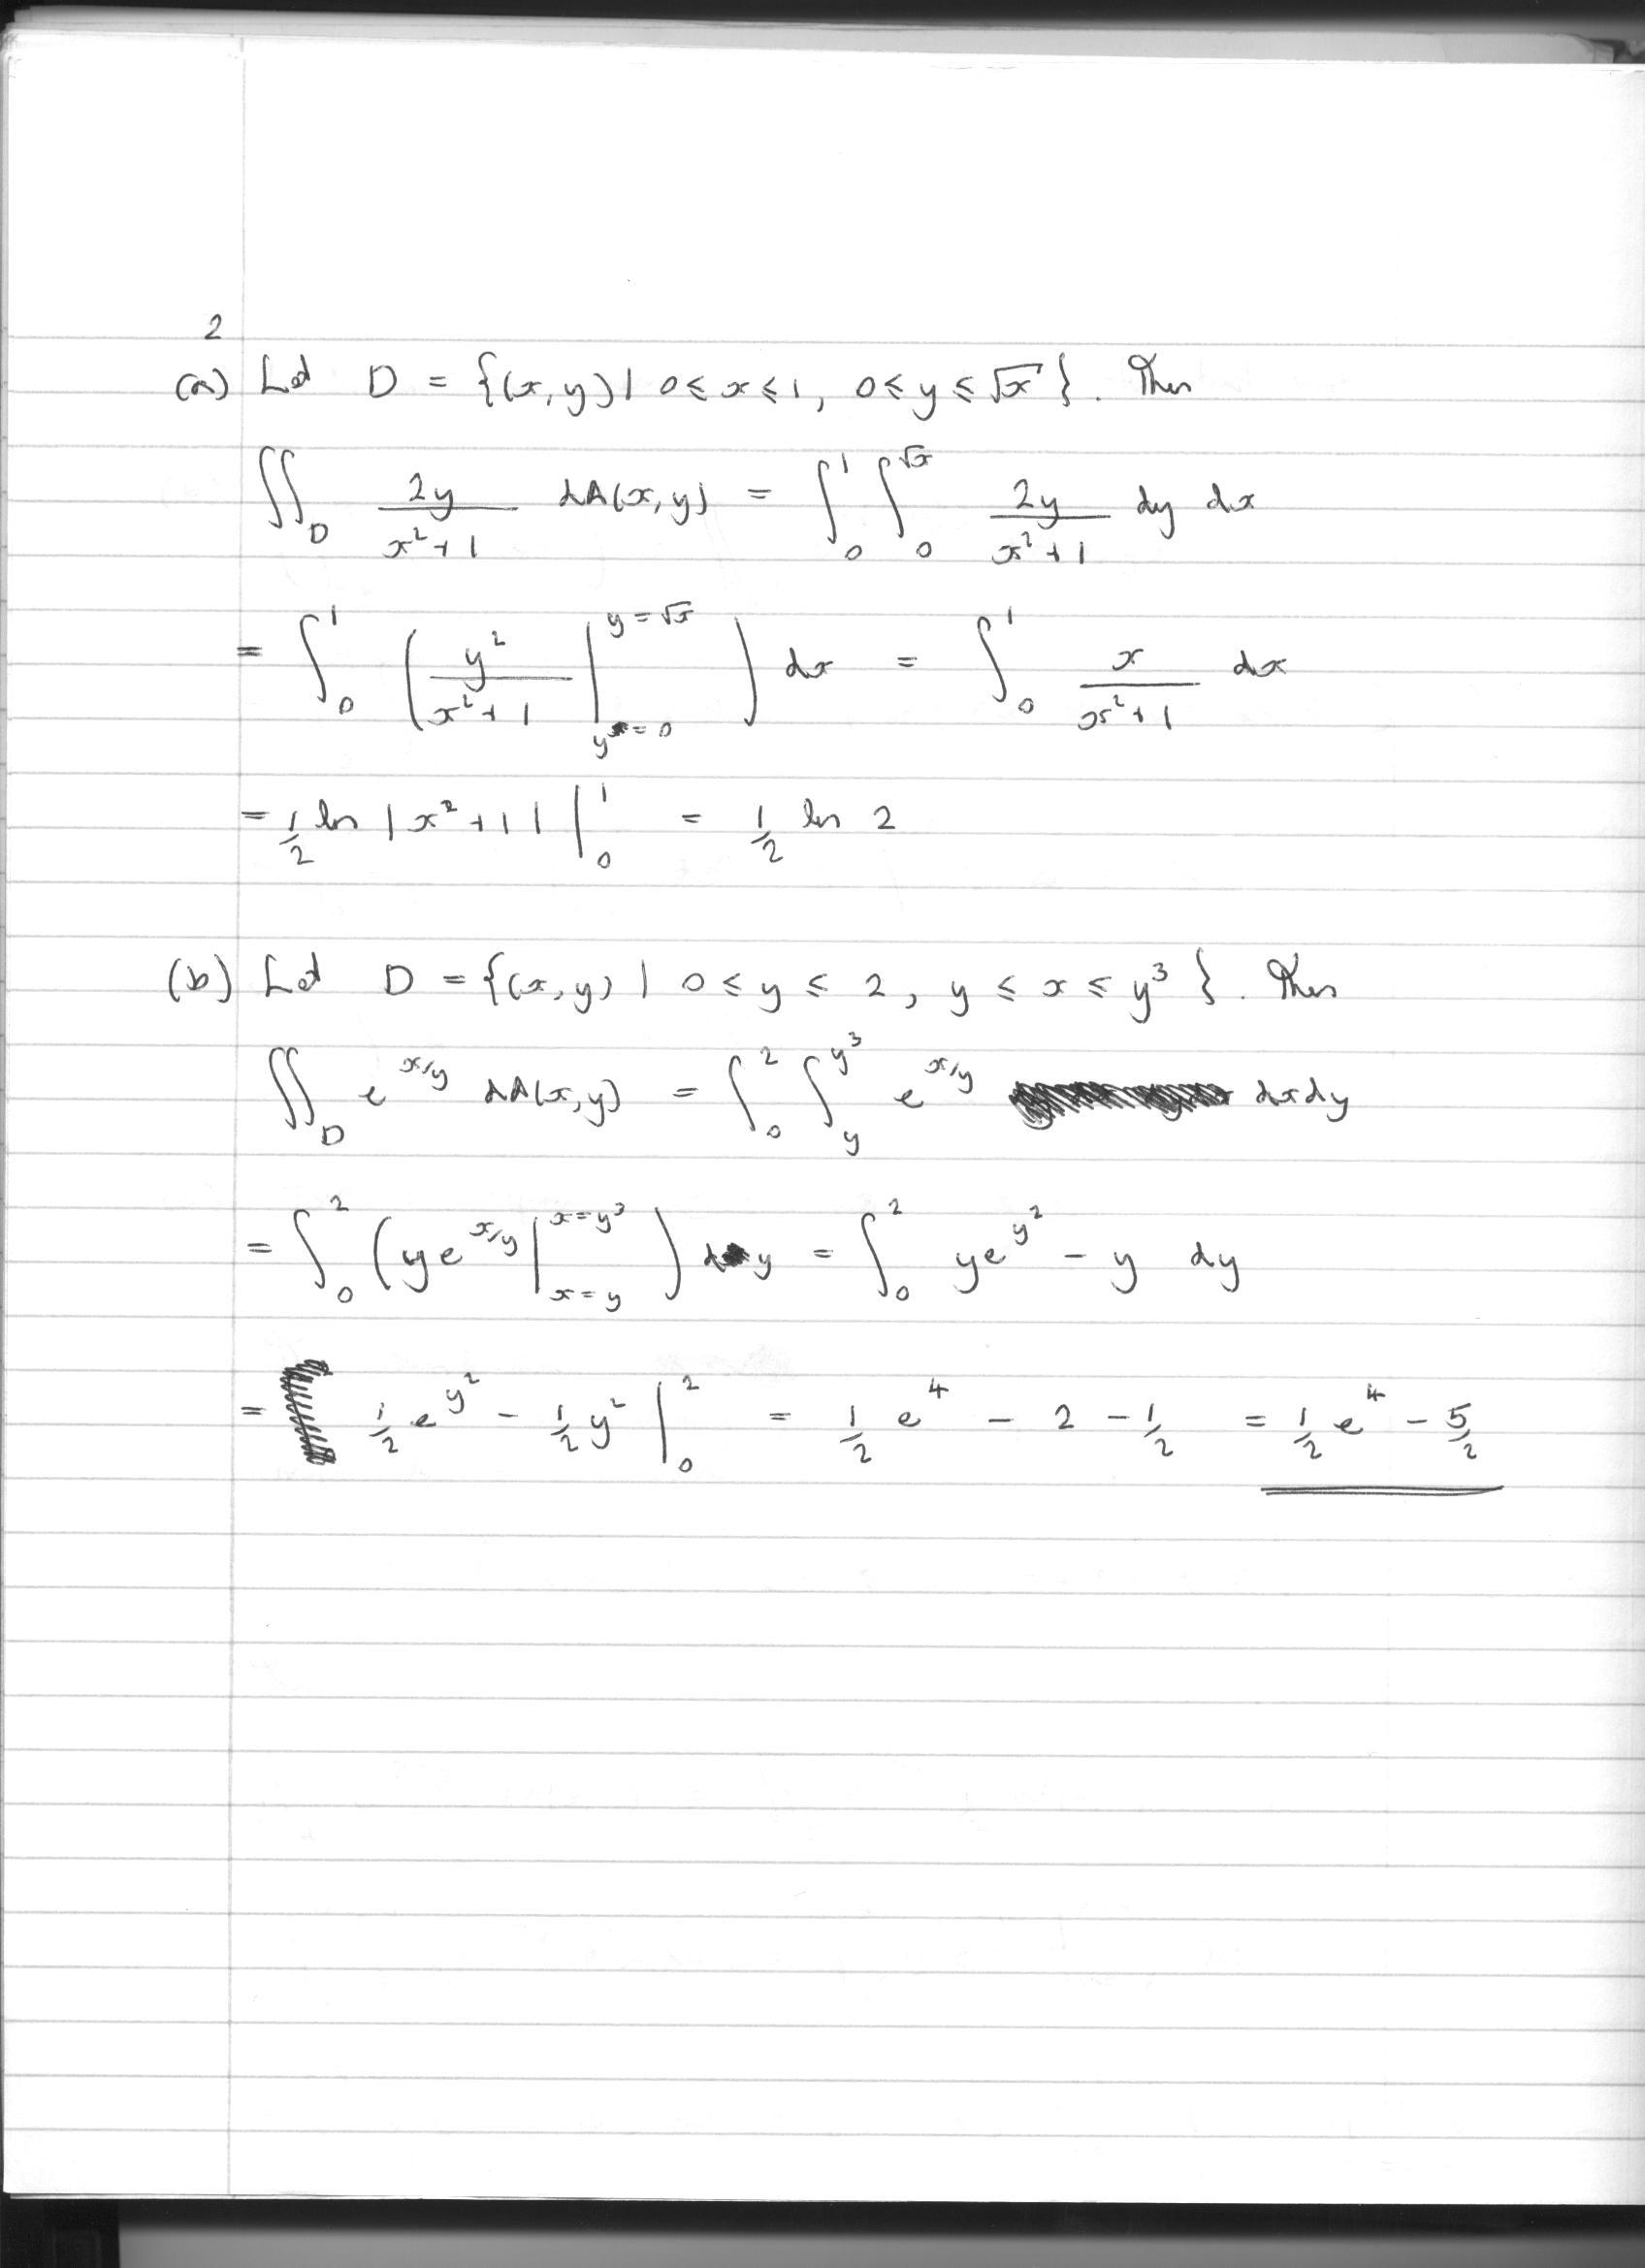 2
(a) Let D = {(x, y) | 0 ≤ x ≤ 1, 0 ≤ y ≤ √x }. Then
∬_D 2y/(x²+1) dA(x, y) = ∫_0^1 ∫_0^√x 2y/(x²+1) dy dx
= ∫_0^1 ( y²/(x²+1) |_{y=0}^{y=√x} ) dx = ∫_0^1 x/(x²+1) dx
= 1/2 ln |x²+1| |_0^1 = 1/2 ln 2
(b) Let D = {(x, y) | 0 ≤ y ≤ 2, y ≤ x ≤ y³ }. Then
∬_D e^{x/y} dA(x, y) = ∫_0^2 ∫_y^{y³} e^{x/y} dxdy
= ∫_0^2 ( ye^{x/y} |_{x=y}^{x=y³} ) dy = ∫_0^2 ye^{y²} - y dy
= 1/2 e^{y²} - 1/2 y² |_0^2 = 1/2 e^4 - 2 - 1/2 = 1/2 e^4 - 5/2